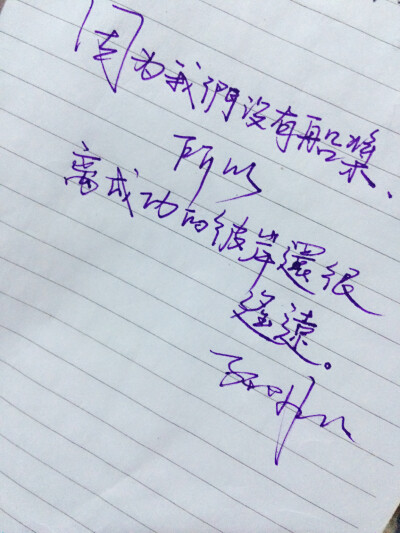 因为我們沒有船槳、
所以
离成功的彼岸還很
遥遠。